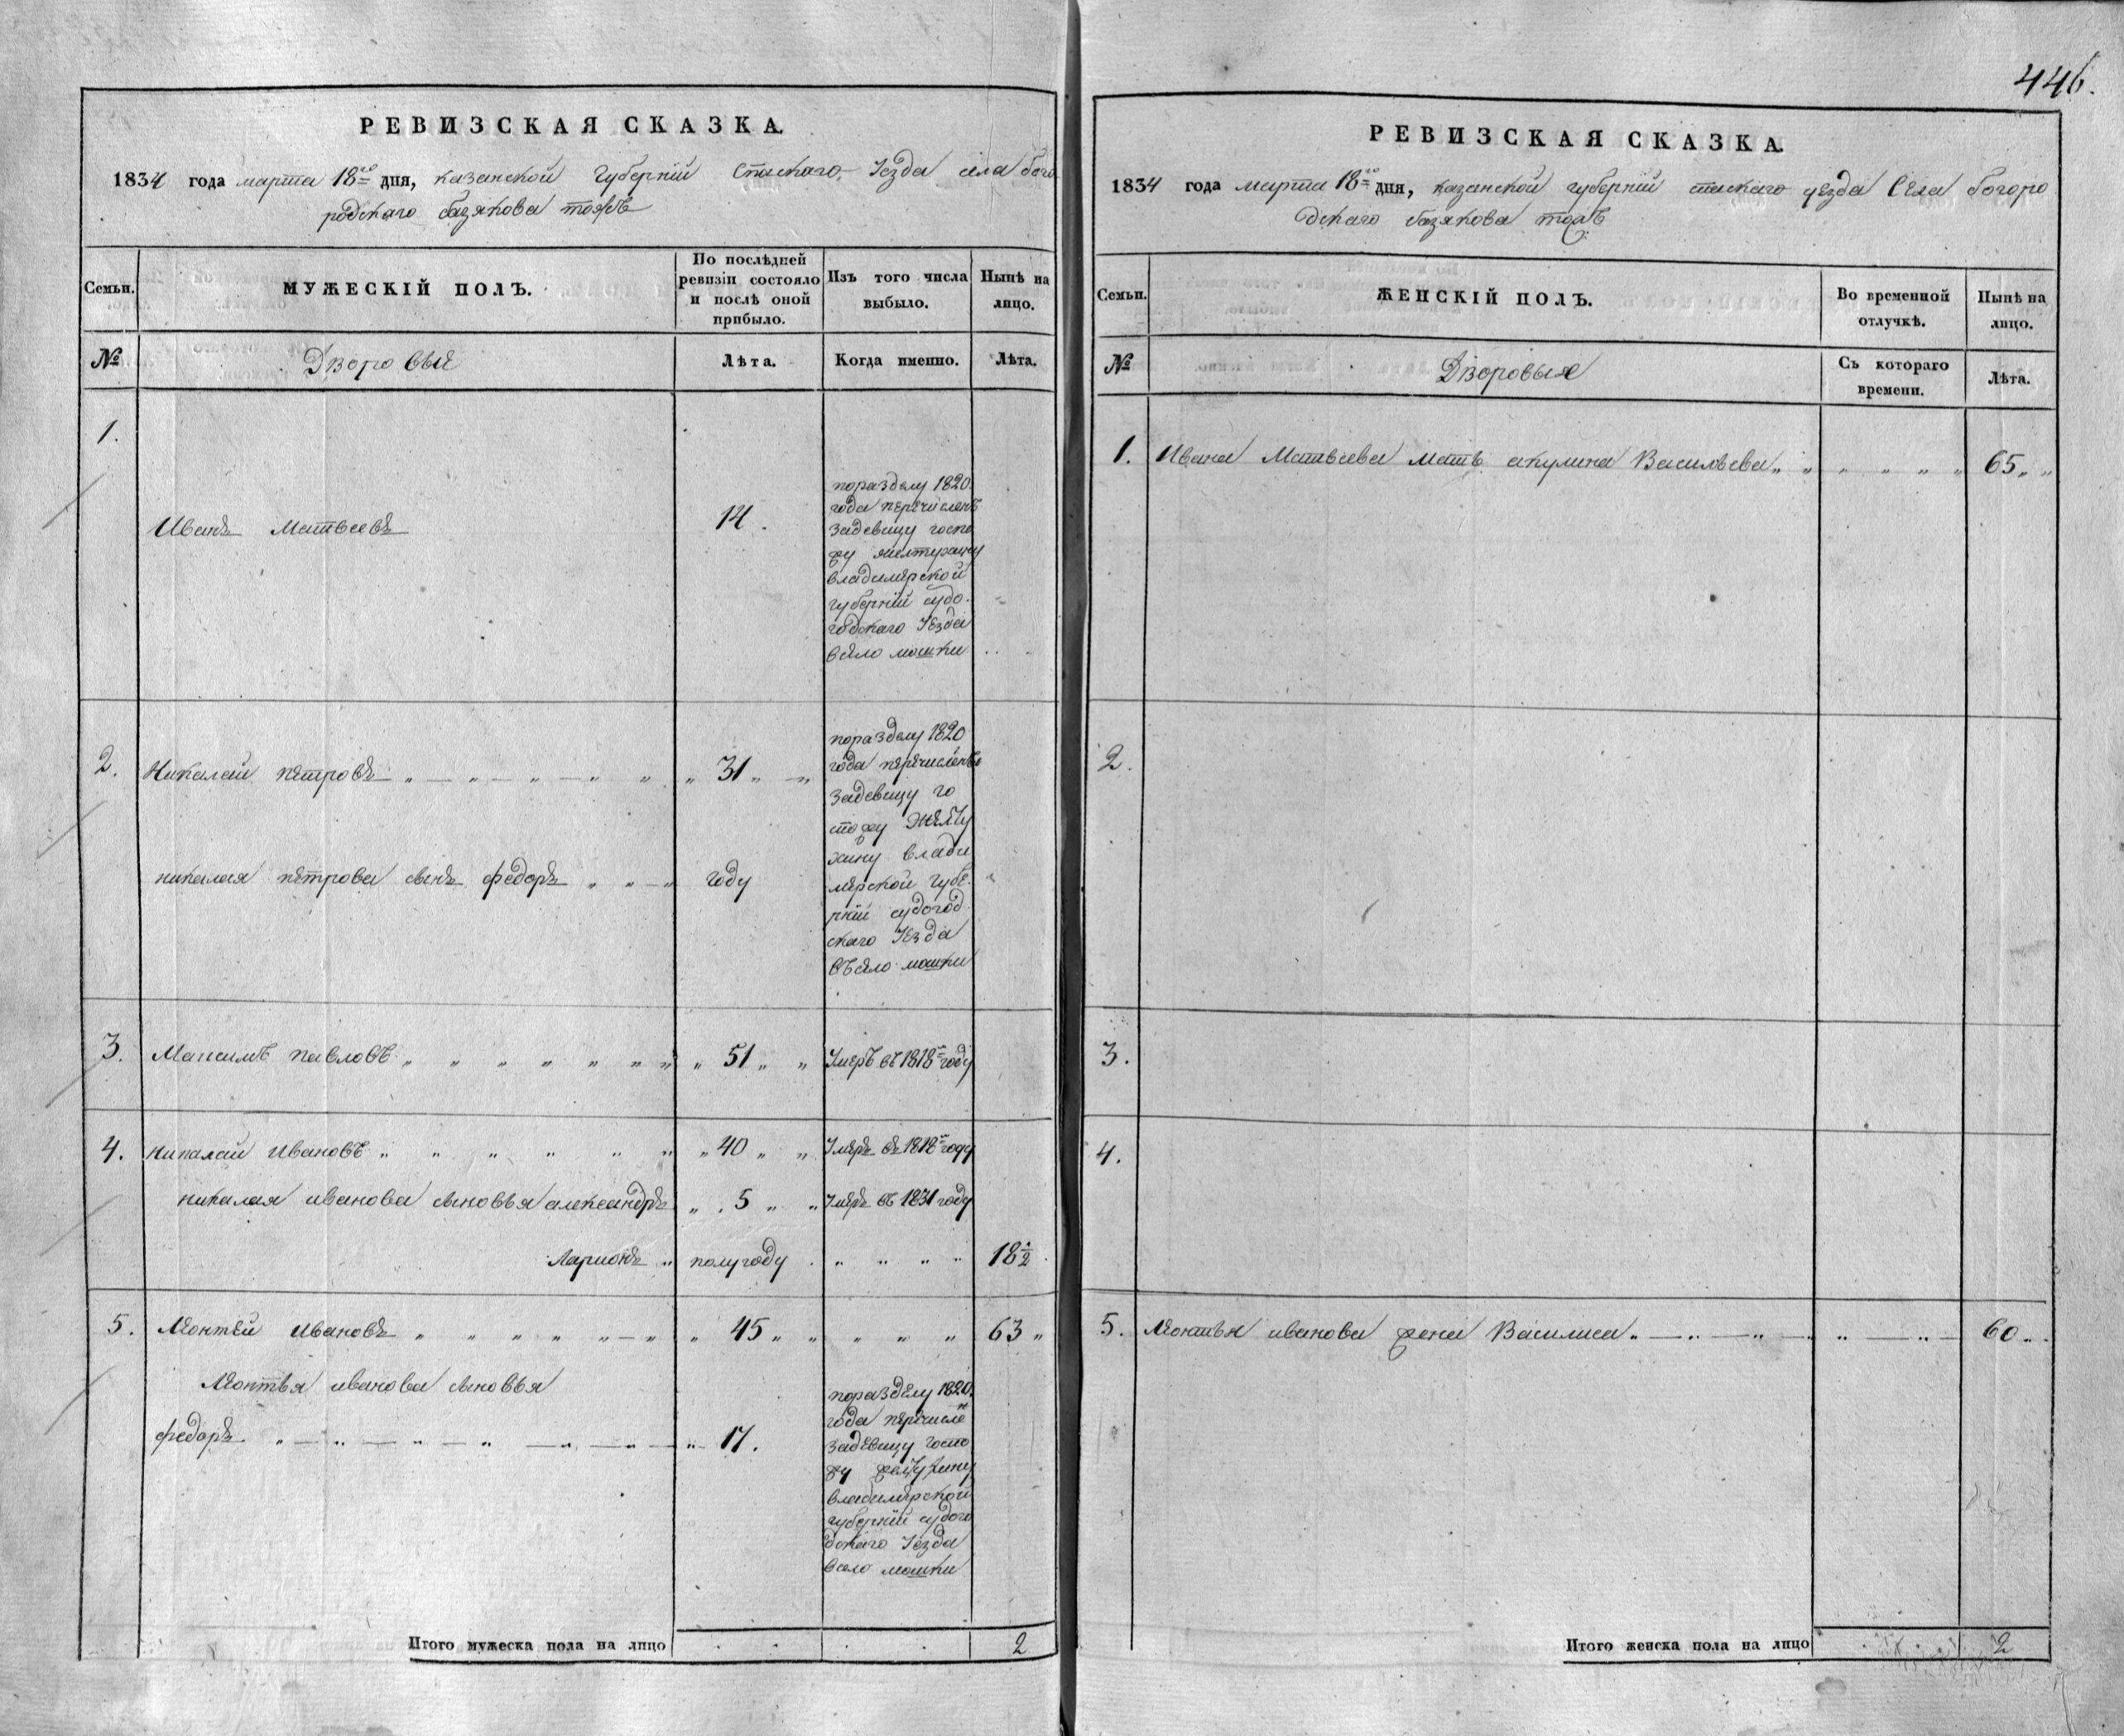 446.
РЕВИЗСКАЯ СКАЗКА.
1834 года марта 18го дня, казанской Губернiи Спаскаго Уезда села бого
родскаго базякова тожъ
Семьи.
МУЖЕСКIЙ ПОЛЪ.
По послѣдней
ревизiи состояло
и послѣ оной
прибыло.
Изъ того числа
выбыло.
Нынѣ на
лицо.
№
Дворовыя
Лѣта.
Когда именно.
Лѣта.
1.
Иванъ Матвеевъ
14.
поразделу 1820
года перечисленъ
задевицу госпо
жу
владимерской
губернiи судо
годскаго Уезда
всело мошки
2.
Николай петровъ
31
николая петрова сынъ федоръ
году
поразделу 1820
года перечисленъ
задевицу го
спожу
владе
мерской губе
рнiи судогод
скаго Уезда
въсело мошки
3.
Максимъ павловъ
51
Умеръ въ 1818м году
4.
николай ивановъ
40
Умеръ въ 1818м году
николая иванова сыновья александръ
5
Умеръ въ 1831 году
Ларионъ
полугоду
18 1/2
5.
Леонтей ивановъ
45
63
Леонтья иванова сыновья
федоръ
17.
поразделу 1820
года перечисле н
задевицу госпо
жу
владимерской
губернiи судого
дскаго Уезда
всело мошки
Итого мужеска пола на лицо
2
РЕВИЗСКАЯ СКАЗКА.
1834 года марта 18го дня, казанской губернiи спаскаго уезда Села богоро
дскаго базякова тожъ
Семьи.
ЖЕНСКIЙ ПОЛЪ.
Во временной
отлучкѣ.
Нынѣ на
лицо.
№
Дворовыя
Съ котораго
времени.
Лѣта.
1.
Ивана Матвеева мать акулина Васильева
65
2.
3.
4.
5.
Леонтья иванова жена Василиса
60
Итого женска пола на лицо
2